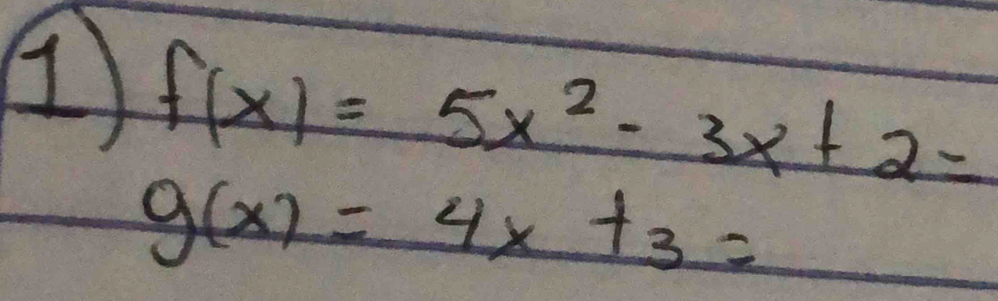 1) f(x) = 5x² - 3x + 2 =
g(x) = 4x + 3 =